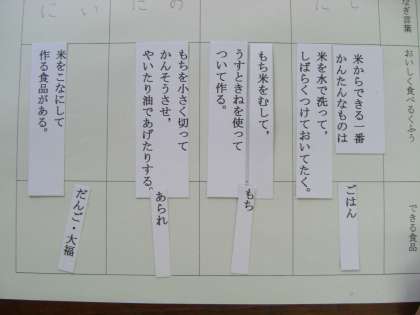 なぎ言葉
おいしく食べるくふう
できる食品
米からできる一番
かんたんなものは
米を水で洗って、
しばらくつけておいてたく。
ごはん
もち米をむして、
うすときねを使って
ついて作る。
もち
もちを小さく切って
かんそうさせ、
やいたり油であげたりする。
あられ
米をこなにして
作る食品がある。
だんご・大福